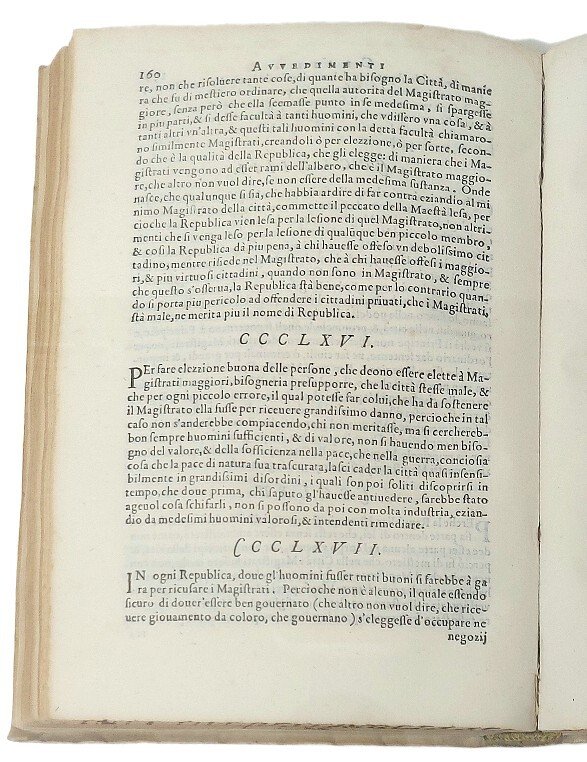 160
AVVEDIMENTI
re, non che risoluere tante cose, di quante ha bisogno la Città, di manie
ra che fu di mestiero ordinare, che quella autorita del Magistrato mag-
giore, senza però che ella scemasse punto in se medesima, si spargesse
in piu parti, & si desse facultà à tanti huomini, che vdissero vna cosa, & à
tanti altri vn'altra, & questi tali huomini con la detta facultà chiamaro-
no similmente Magistrati, creandoli ò per elezzione, ò per sorte, secon-
do che è la qualità della Republica, che gli elegge: di maniera che i Ma-
gistrati vengono ad esser rami dell'albero, che è il Magistrato maggio-
re, che altro non vuol dire, se non essere della medesima sustanza. Onde
nasce, che qualunque si sia, che habbia ardire di far contr eziandio al mi
nimo Magistrato della città, commette il peccato della Maestà lesa, per
cioche la Republica vien lesa per la lesione di quel Magistrato, non altri-
menti che si venga leso per la lesione di qualùque ben piccolo membro,
& cosi la Republica dà piu pena, à chi hauesse offeso vn debolissimo cit
tadino, mentre risiede nel Magistrato, che à chi hauesse offesi i maggio-
ri, & piu virtuosi cittadini, quando non sono in Magistrato, & sempre
che questo s'osserua, la Republica stà bene, come per lo contrario quan-
do si porta piu pericolo ad offendere i cittadini priuati, che i Magistrati,
stà male, ne merita piu il nome di Republica.
CCCLXVI.
PEr fare elezzione buona delle persone, che deono essere elette à Ma-
gistrati maggiori, bisogneria presupporre, che la città stesse male, &
che per ogni piccolo errore, il qual potesse far colui, che ha da sostenere
il Magistrato ella fusse per riceuere grandissimo danno, percioche in tal
caso non s'anderebbe compiacendo, chi non meritasse, ma si cerchereb-
bon sempre huomini sufficienti, & di valore, non si hauendo men biso-
gno del valore, & della sofficienza nella pace, che nella guerra, conciosia
cosa che la pace di natura sua trascurata, lasci cader la città quasi insensi-
bilmente in grandissimi disordini, i quali son poi soliti discoprirsi in
tempo, che doue prima, chi saputo gl'hauesse antiuedere, sarebbe stato
ageuol cosa schifarli, non si possono da poi con molta industria, ezian-
dio da medesimi huomini valorosi, & intendenti rimediare.
CCCLXVII.
IN ogni Republica, doue gl'huomini fusser tutti buoni si farebbe à ga
ra per ricusare i Magistrati. Percioche non è alcuno, il quale essendo
sicuro di douer'essere ben gouernato (che altro non vuol dire, che rice-
uere giouamento da coloro, che gouernano) s'eleggesse d'occupare ne
negozij